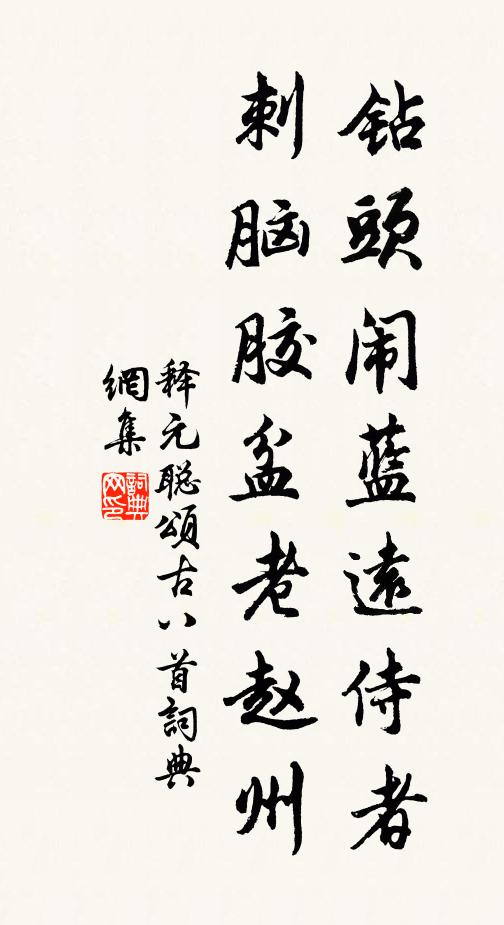 钻頭闹蓝遠侍者
刺脑胶盆老赵州
释元聪頌古八首詞典
網集
詞典
网印